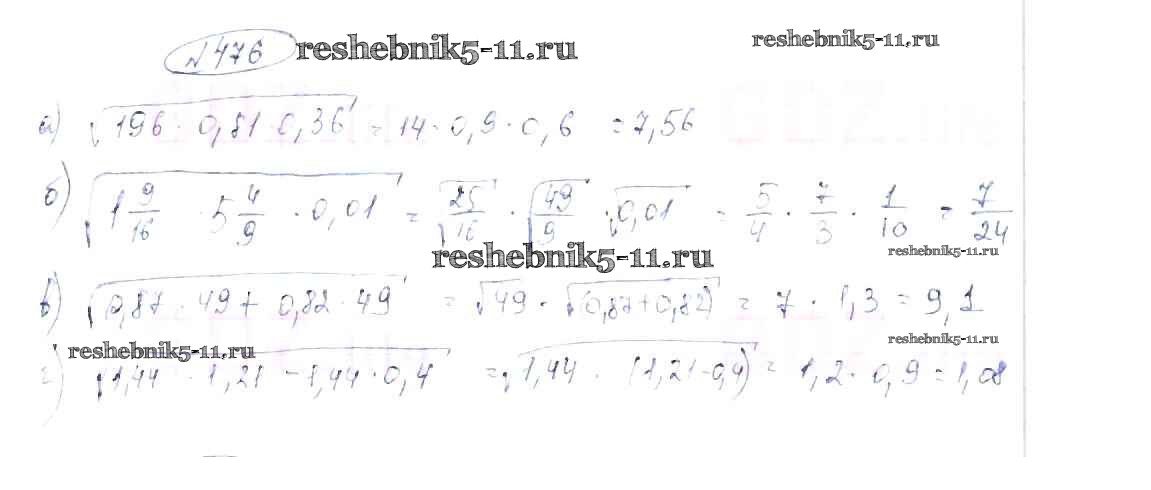 №476 reshebnik5-11.ru reshebnik5-11.ru
а) √(196 · 0,81 0,36) = 14 · 0,9 · 0,6 = 7,56
б) √(1 9/16 · 5 4/9 · 0,01) = √(25/16) · √(49/9) · √0,01 = 5/4 · 7/3 · 1/10 = 7/24
reshebnik5-11.ru reshebnik5-11.ru
в) √(0,87 · 49 + 0,82 · 49) = √49 · √(0,87+0,82) = 7 · 1,3 = 9,1
reshebnik5-11.ru reshebnik5-11.ru
г) √(1,44 · 1,21 - 1,44 · 0,4) = √(1,44 · (1,21-0,4)) = 1,2 · 0,9 = 1,08